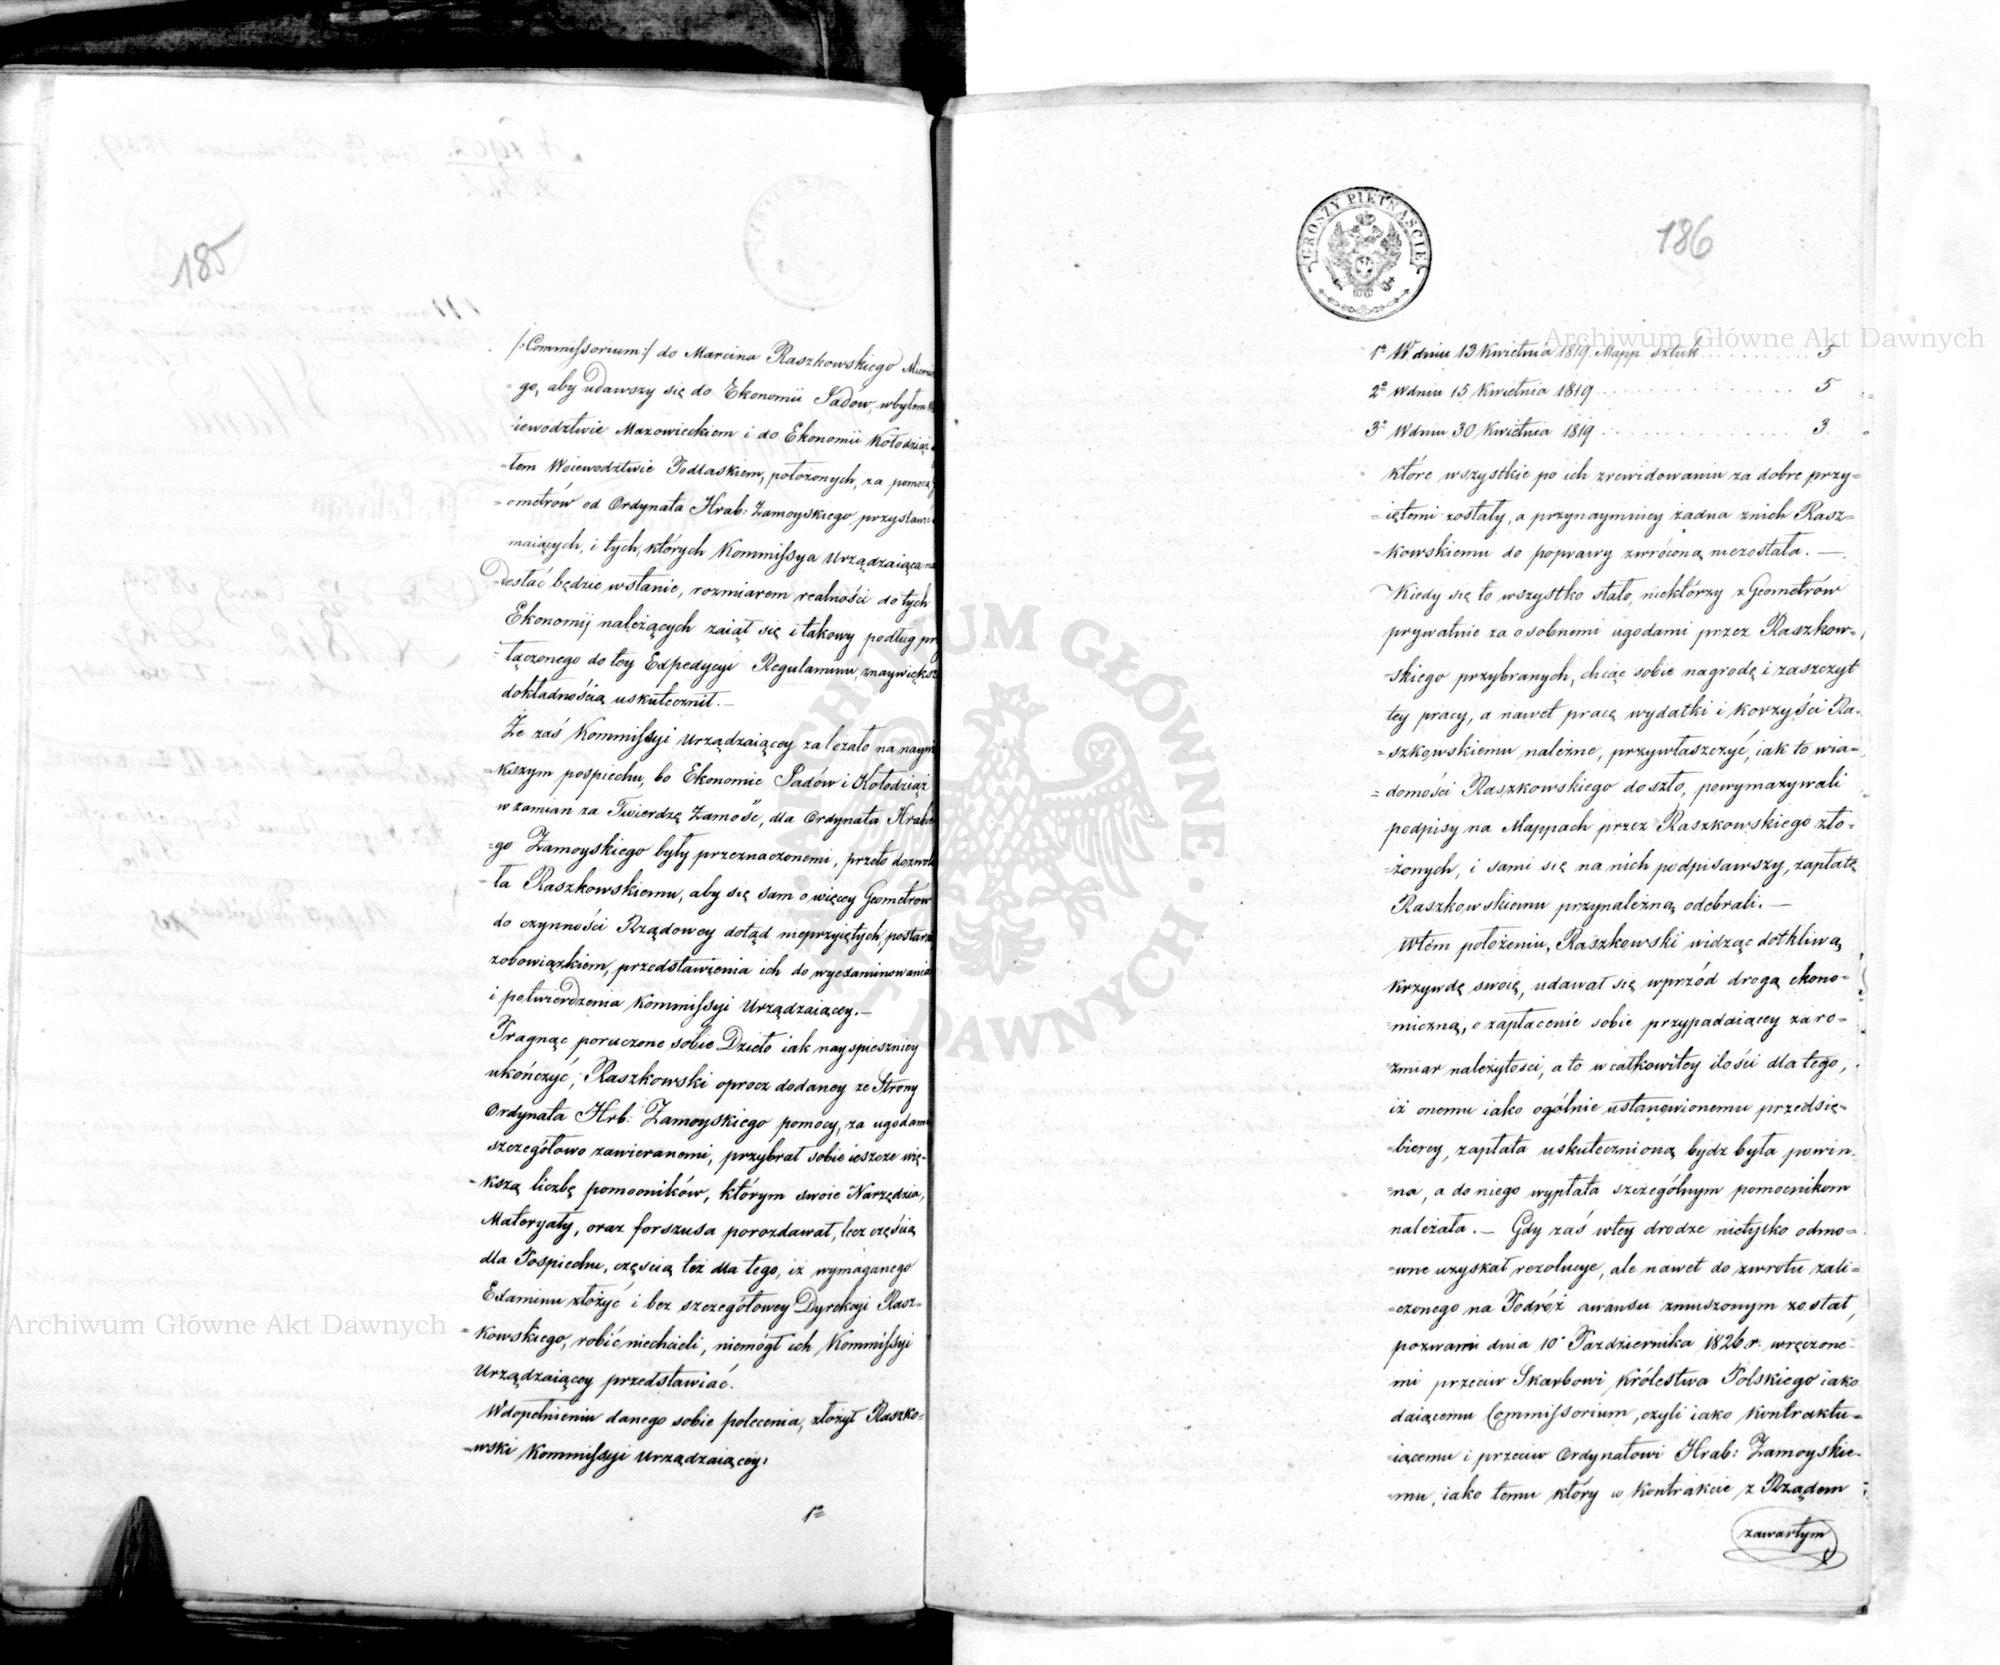 185
/:Commissorium:/ do Marcina Raszkowskiego
=go, aby udawszy się do Ekonomii Sadow, wbyłem
iewodztwie Mazowieckiem i do Ekonomii Kołodziąż
=tem Woiewodztwie Podlaskiem, położonych, za pomocą
=ometrów od Ordynata Hrab: Zamoyskiego przystawić
maiących, i tych, których Kommissya Urządzaiąca na
=desłać będzie wstanie, rozmiarem realności do tych
Ekonomij należących zaiął się i takowy podług
=łączonego do tey Expedycyi Regulaminu, znaywiększ
dokładnością uskutecznił.—
Że zaś Kommissyi Urządzaiącey zależało na nayw
=kszym pospiechu, bo Ekonomie Sadów i Kołodziąż
wzamian za Twierdzę Zamość, dla Ordynata Hrabie
=go Zamoyskiego były przeznaczonemi, przeto dozwoli
=ła Raszkowskiemu, aby się sam o więcey Geometrów
do czynności Rządowey dotąd nieprzyiętych, postarał
zobowiązkiem, przedstawienia ich do wyexaminowania
i potwierdzenia Kommissyi Urządzaiącey.—
Pragnąc poruczone sobie Dzieło iak nayspieszniey
ukończyć, Raszkowski oprocz dodaney ze Strony
Ordynata Hrb: Zamoyskiego pomocy, za ugodami
szczegółowo zawieranemi, przybrał sobie ieszcze wię=
=kszą liczbę pomocników, którym swoie Narzędzia,
Materyały, oraz forszusa porozdawał, lecz częścią
dla Pospiechu, częścią też dla tego, iż wymaganego
Examinu złożyć i bez szczegółowey Dyrekcyi Rasz=
=kowskiego, robić niechcieli, niemógł ich Kommissyi
Urządzaiącey przedstawiać.
Wdopełnieniu danego sobie polecenia, złożył Raszko=
=wski Kommissyi Urządzaiącey:
1º
GROSZY PIĘTNAŚCIE
186
1º W dniu 13 Kwietnia 1819. Mapp sztuk . . . . . . . . . . 5
2º Wdniu 15 Kwietnia 1819 . . . . . . . . . . . . . . . . 5
3º Wdniu 30 Kwietnia 1819 . . . . . . . . . . . . . . . . 3
które wszystkie po ich zrewidowaniu za dobre przy=
=iętemi zostały, a przynaymniey żadna znich Rasz=
=kowskiemu do poprawy zwróconą niezostała.—
Kiedy się to wszystko stało, niektórzy z Geometrów
prywatnie za osobnemi ugodami przez Raszkow=
=skiego przybranych, chcąc sobie nagrodę i zaszczyt
tey pracy, a nawet pracę wydatki i korzyści Ra=
=szkowskiemu należne, przywłaszczyć, iak to wia=
=domości Raszkowskiego doszło, powymazywali
podpisy na Mappach przez Raszkowskiego zło=
=żonych, i sami się na nich podpisawszy, zapłatę
Raszkowskiemu przynależną odebrali.—
Wtem położeniu, Raszkowski widząc dotkliwą
krzywdę swoię, udawał się wprzód drogą ekono=
=miczną, o zapłacenie sobie przypadaiącey za ro=
zmiar należytości, a to w całkowitey ilości dla tego,
iż onemu iako ogólnie ustanowionemu przedsię=
=biercy, zapłata uskutecznioną bydz była powin=
=na, a do niego wypłata szczególnym pomocnikom
należała.— Gdy zaś wtey drodze nietylko odmo=
=wne uzyskał rezolucye, ale nawet do zwrotu zali=
=czonego na Podróż awansu zmuszonym został,
pozwami dnia 10 Października 1826 r. wręczone=
mi przeciw Skarbowi Królestwa Polskiego iako
daiącemu Commissorium, czyli iako kontraktu=
=iącemu i przeciw Ordynatowi Hrab: Zamoyskie=
=mu, iako temu który w Kontrakcie z Rządem
zawartym
Archiwum Główne Akt Dawnych
Archiwum Główne Akt Dawnych
ARCHIWUM GŁÓWNE AKT DAWNYCH